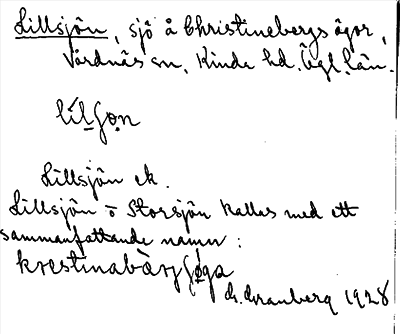 Lillsjön, sjö å Christinebergs ägor,
Vårdnäs sn, Kinda hd. Ögl. län.
Lillsjön ek.
Lillsjön o Storsjön kallas med ett
sammanfattande namn:
G. Granberg 1928